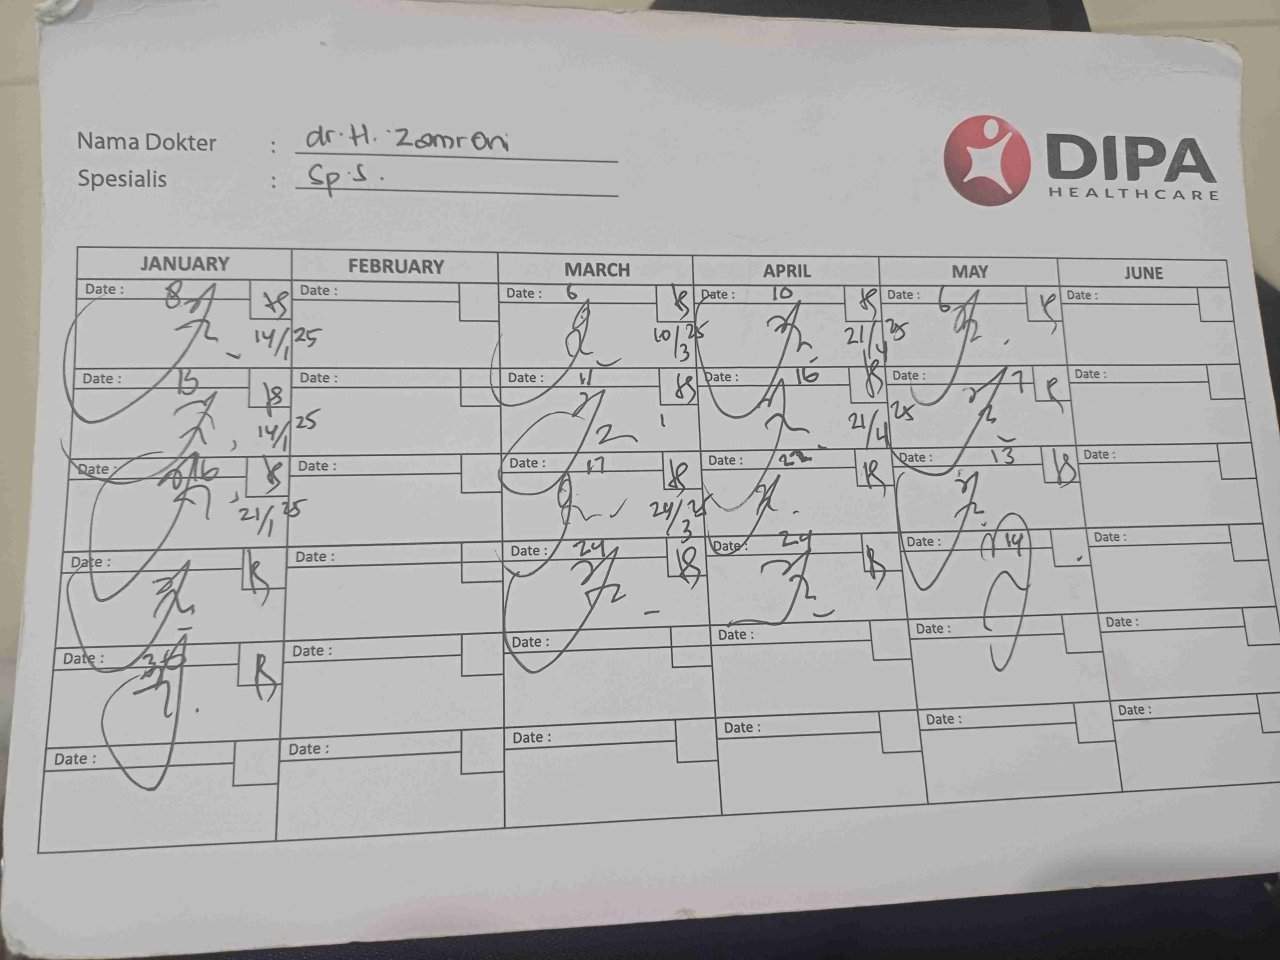 Nama Dokter : dr. H. Zamroni
Spesialis : Sp.S.
DIPA
HEALTHCARE
JANUARY FEBRUARY MARCH APRIL MAY JUNE
Date : 8 Date : Date : 6 Date : 10 Date : 6 Date :
14/1 25 10/3 25 21/4 25
Date : 15 Date : Date : 11 Date : 16 Date : 7 Date :
14/1 25 21/4 25
Date : 16 Date : Date : 17 Date : 22 Date : 13 Date :
21/1 25 24/3 25
Date : Date : Date : 24 Date : 24 Date : 14 Date :
Date : 30 Date : Date : Date : Date : Date :
Date : Date : Date : Date : Date : Date :